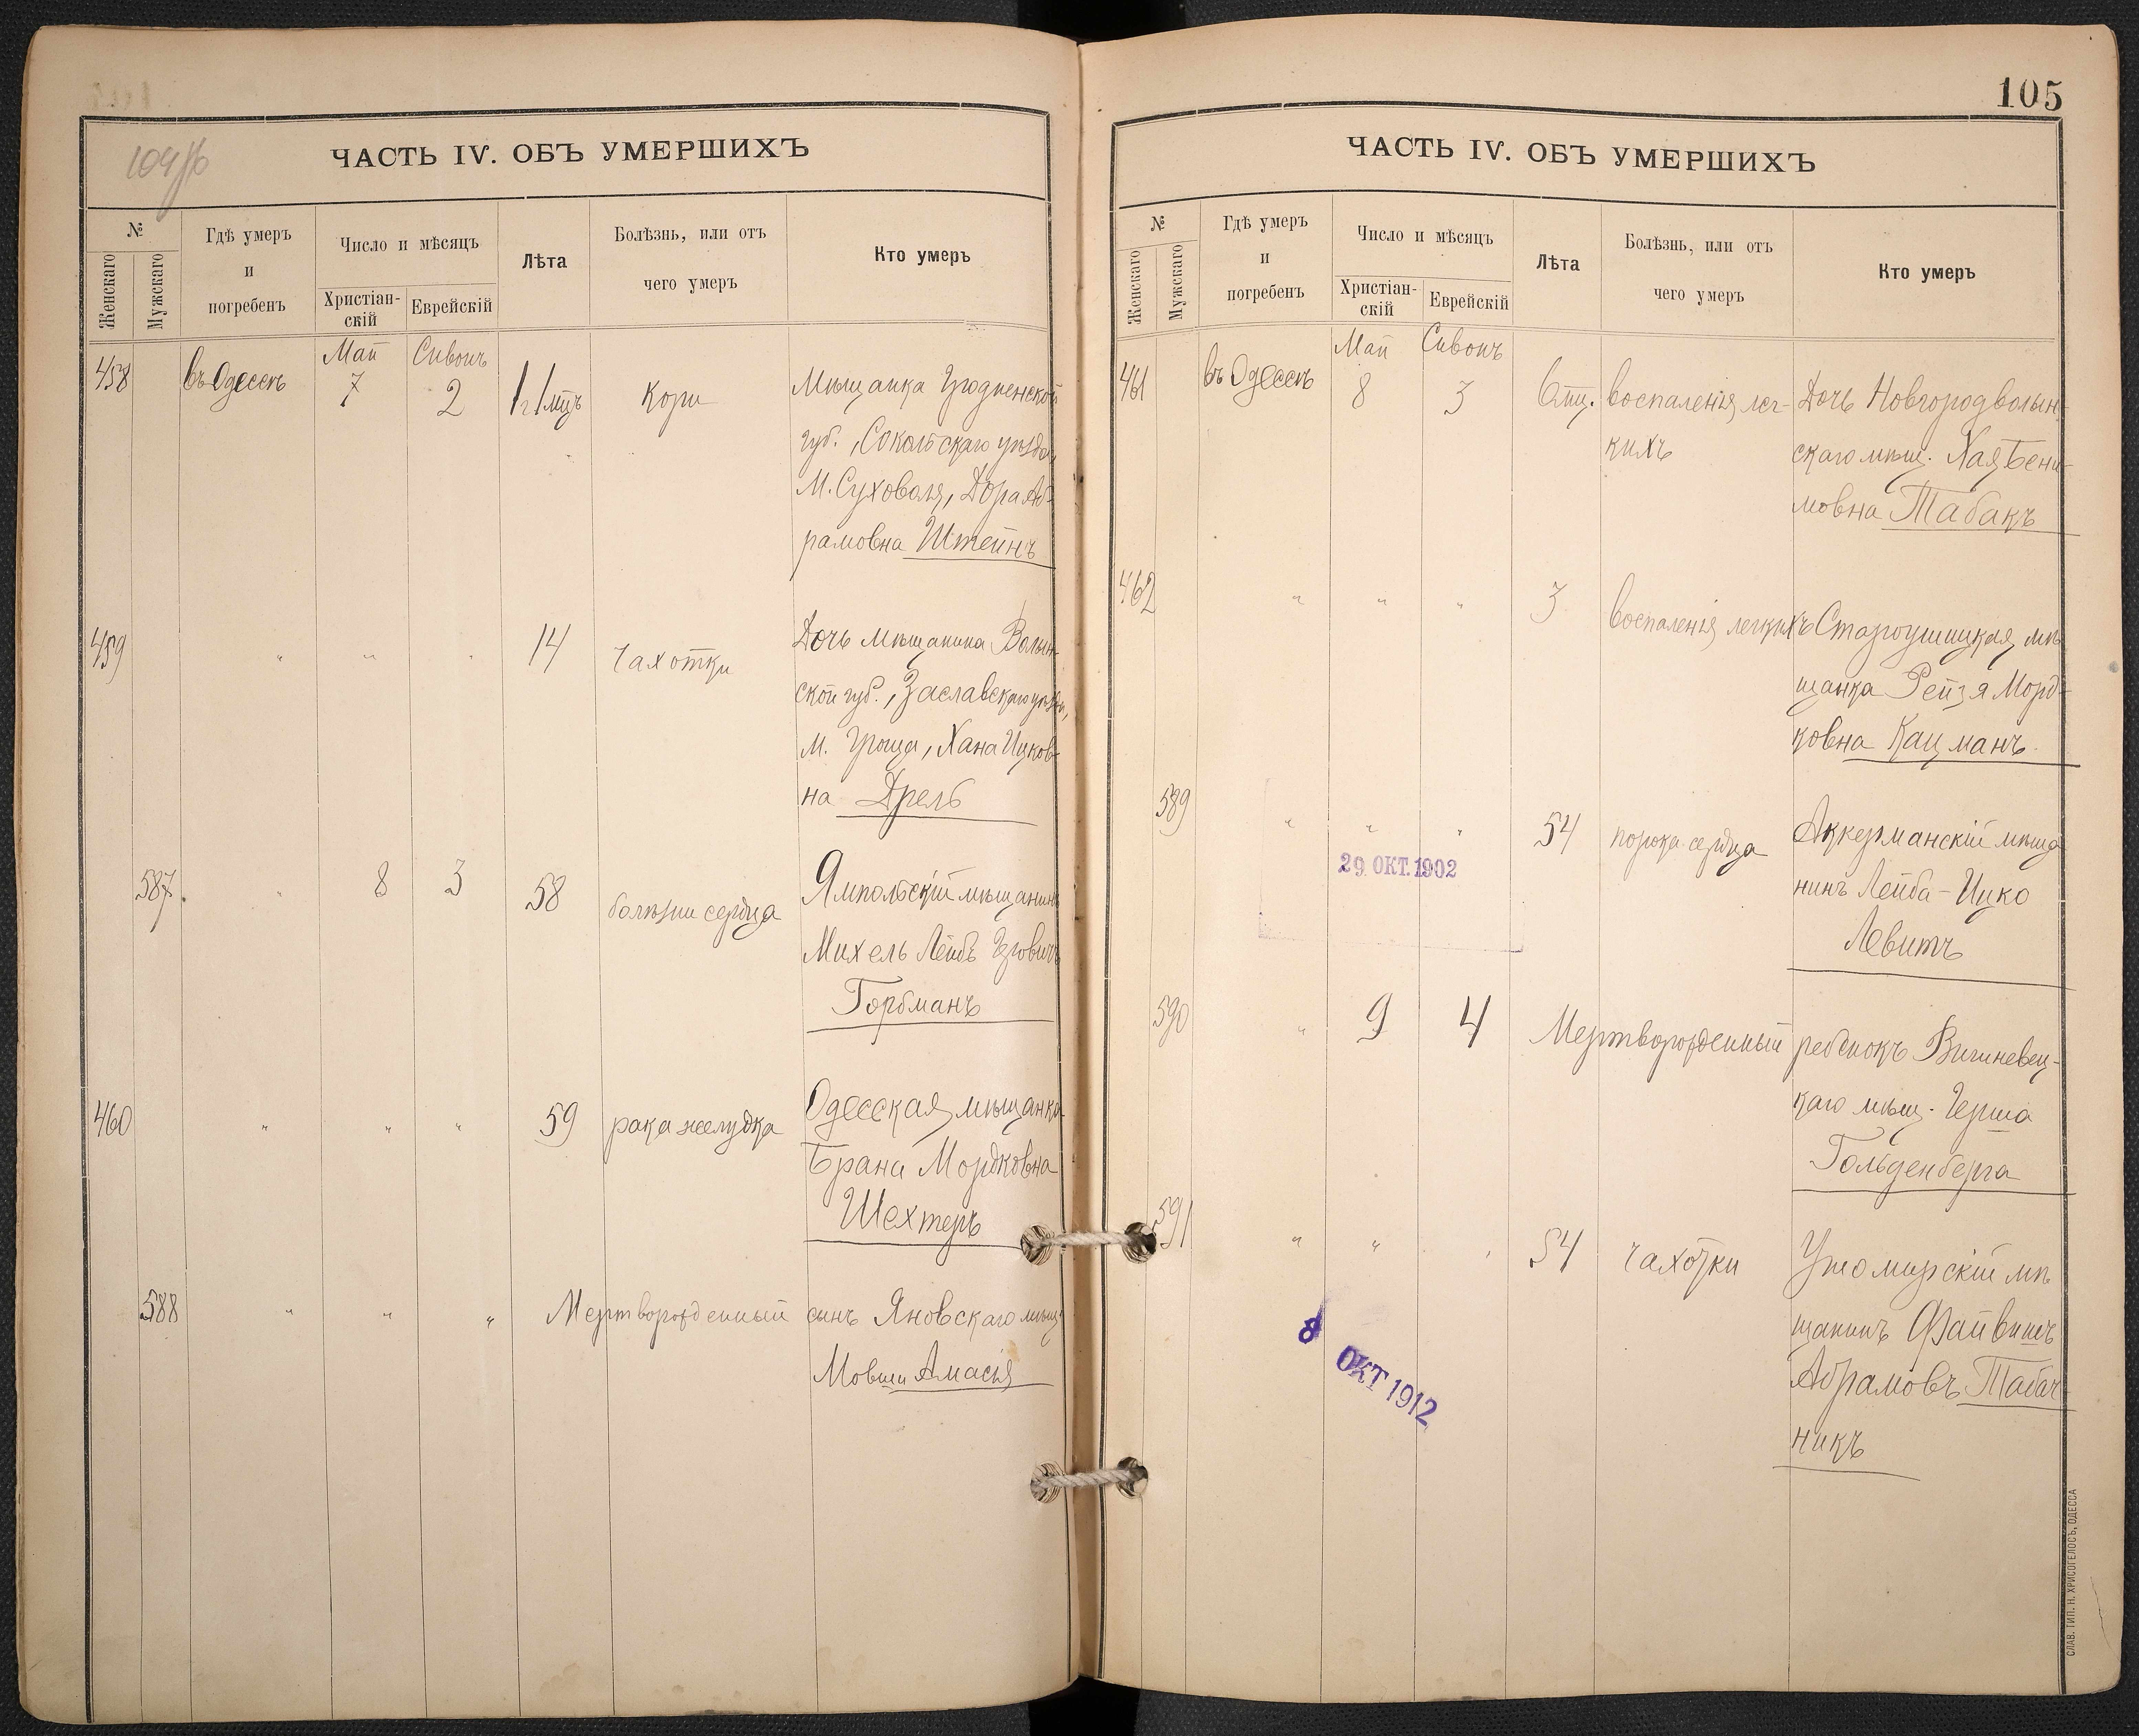 104 об
ЧАСТЬ IV. ОБЪ УМЕРШИХЪ
№
Женскаго
Мужскаго
Гдѣ умеръ
и
погребенъ
Число и мѣсяцъ
Христіан-
скій
Еврейскій
Лѣта
Болѣзнь, или отъ
чего умеръ
Кто умеръ
Май Сивонъ
458 въ Одессѣ 7 2 1 г 1 мѣц Кори Мѣщанка Гродненской
губ., Сокольскаго уѣзда
М. Суховоля, Дора Аб-
рамовна Штейнъ
459 " " " 14 чахотки Дочь мѣщанина Волын-
ской губ., Заславскаго уѣзда,
М. Грица, Хана Ицков-
на Дрель
587 " 8 3 58 болѣзни сердца Ямпольскій мѣщанинъ
Михель Лейбъ
Горбманъ
460 " " " 59 рака желудка Одесская мѣщанка
Брана Мордковна
Шехтеръ
588 " " " Мертворожденный сынъ Яновскаго мѣщ.
Мовши Амасія
105
ЧАСТЬ IV. ОБЪ УМЕРШИХЪ
№
Женскаго
Мужскаго
Гдѣ умеръ
и
погребенъ
Число и мѣсяцъ
Христіан-
скій
Еврейскій
Лѣта
Болѣзнь, или отъ
чего умеръ
Кто умеръ
Май Сивонъ
461 въ Одессѣ 8 3 6 мц. воспаленія лег- Дочь Новгородволын-
кихъ скаго мѣщ. Хая Бени-
мовна Табакъ
462 " " " 3 воспаленія легкихъ Староушицкая мѣ-
щанка Рейзя Морд-
ковна Кацманъ
589 " " " 54 порока сердца Аккерманскій мѣща
нинъ Лейба-Ицко
Левитъ
29 ОКТ. 1902
590 " 9 4 Мертворожденный ребенокъ Вишневец-
каго мѣщ. Герша
Гольденберга
591 " " " 54 чахотки Ушомирскій мѣ
щанинъ Файвишъ
Абрамовъ Табач-
никъ
8 ОКТ 1912
СЛАВ. ТИП. Н. ХРИСОГЕЛОСЪ, ОДЕССА